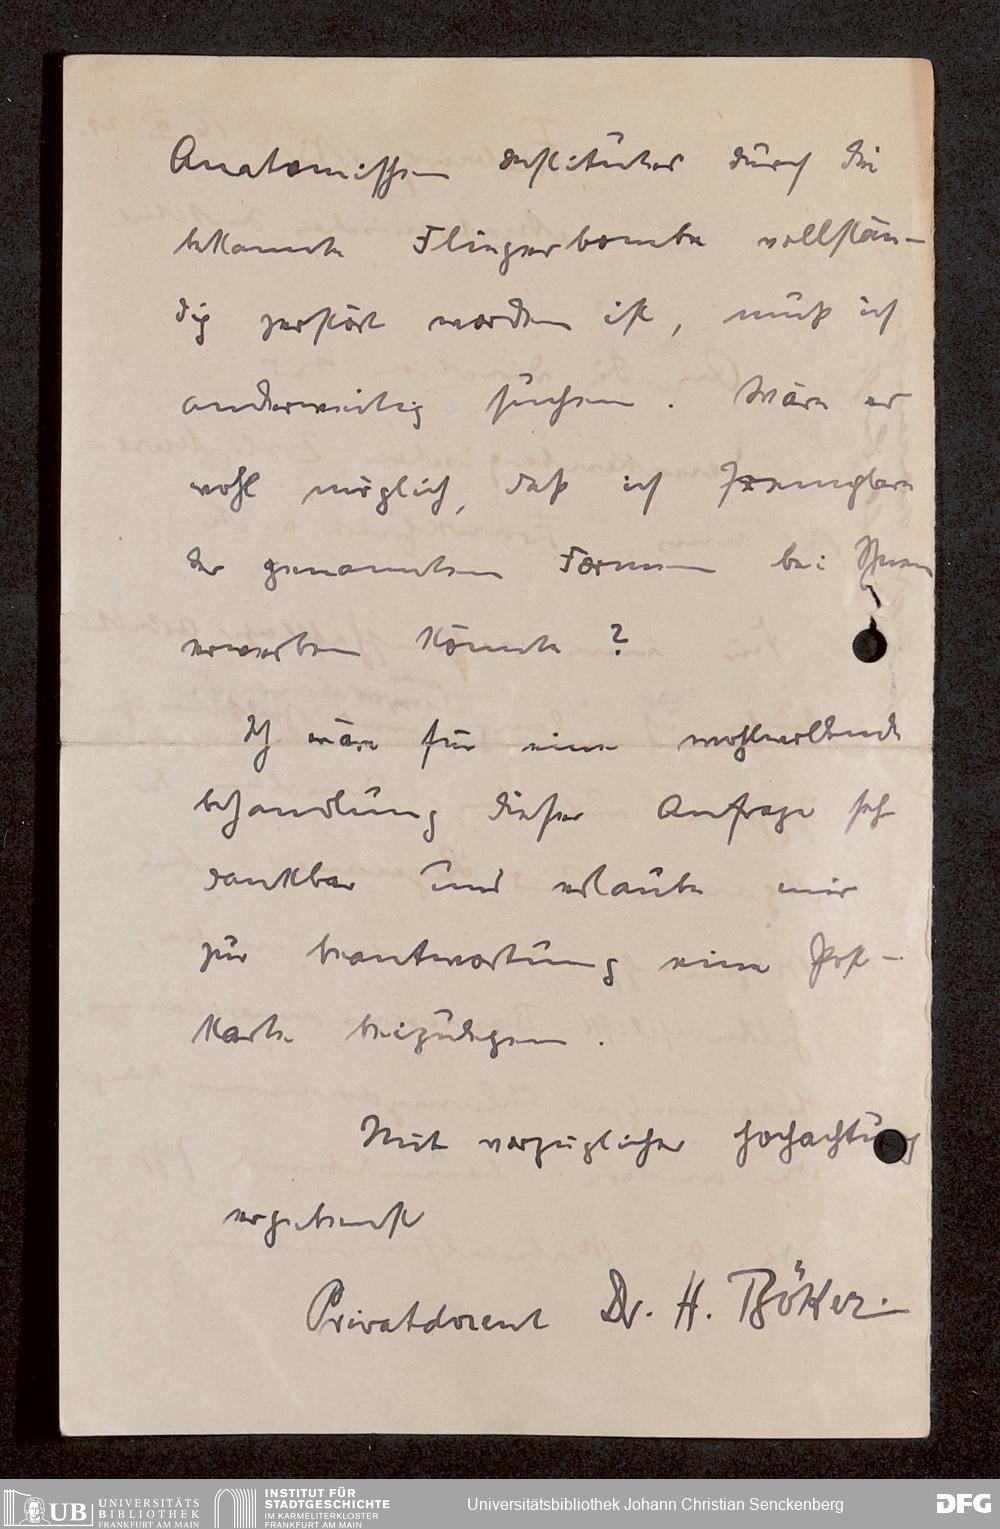 Anatomischen Institutes durch die
bekannte Fliegerbombe vollstän-
dig zerstört worden ist, muß ich
anderweitig suchen. Wäre es
wohl möglich, daß ich Exemplare
der genannten Formen bei Ihnen
erwerben könnte?
Ich wäre für eine wohlwollende
Behandlung dieser Anfrage sehr
dankbar und erlaube mir
zur Beantwortung eine Post-
karte beizulegen.
Mit vorzüglicher Hochachtung
ergebenst
Privatdozent Dr. H. Böker.
UB UNIVERSITÄTS
BIBLIOTHEK
FRANKFURT AM MAIN
INSTITUT FÜR
STADTGESCHICHTE
IM KARMELITERKLOSTER
FRANKFURT AM MAIN
Universitätsbibliothek Johann Christian Senckenberg
DFG